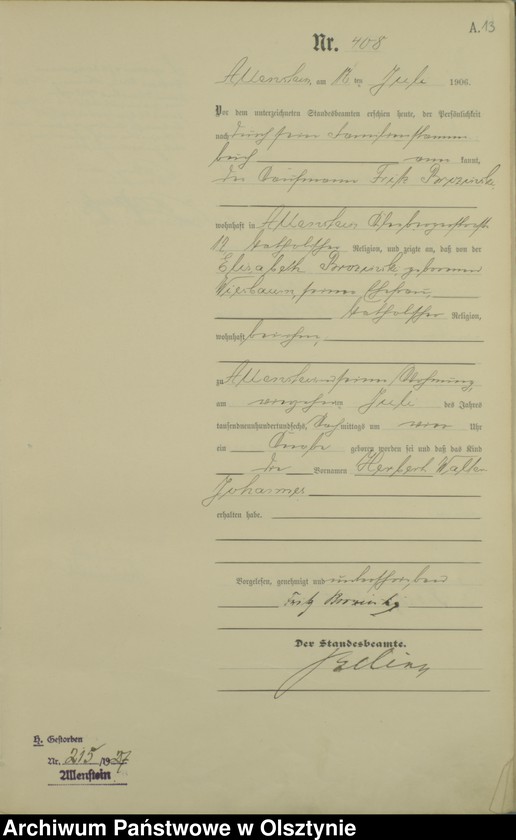 A. 13
Nr. 408
Allenstein, am 12 ten Juli 1906.
Vor dem unterzeichneten Standesbeamten erschien heute, der Persönlichkeit
nach durch seinen Familienstamm
buch aner kannt,
der Kaufmann Fritz
wohnhaft in Allenstein
17 katholischer Religion, und zeigte an, daß von der
Elisabeth geborenen
seiner Ehefrau,
katholischer Religion,
wohnhaft bei ihm,
zu Allenstein in seiner Wohnung,
am Juli des Jahres
tausendneunhundertundsechs, mittags um Uhr
ein Knabe geboren worden sei und daß das Kind
die Vornamen Herbert Walter
Johannes
erhalten habe.
Vorgelesen, genehmigt und unterschrieben
Fritz
Der Standesbeamte.
H. Gestorben
Nr. 215 /19 37
Allenstein
Archiwum Państwowe w Olsztynie